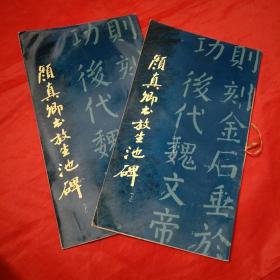 顏真卿书放生池碑
功
後代魏
則刻金石垂於
顏真卿书放生池碑
功
後代魏文帝
則刻金石垂於